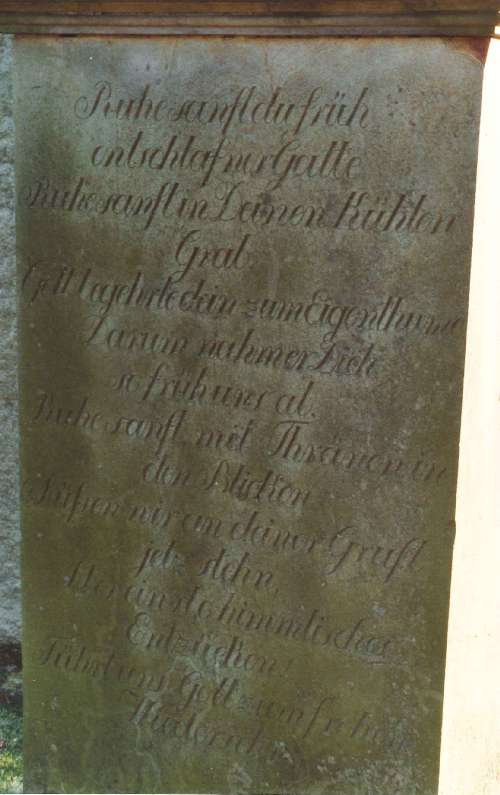 Ruhe sanft du früh
entschlafner Gatte
Ruhe sanft in Deinen Kühlen
Grab
Gott begehrte dein zum Eigenthume
Darum nahm er Dich
so früh uns ab.
Ruhe sanft, mit Thränen in
den Blicken
Müssen wir an deiner Gruft
jetz stehn,
himmlisches
Entzücken!
Führt uns Gott zum frohen
Wiedersehn